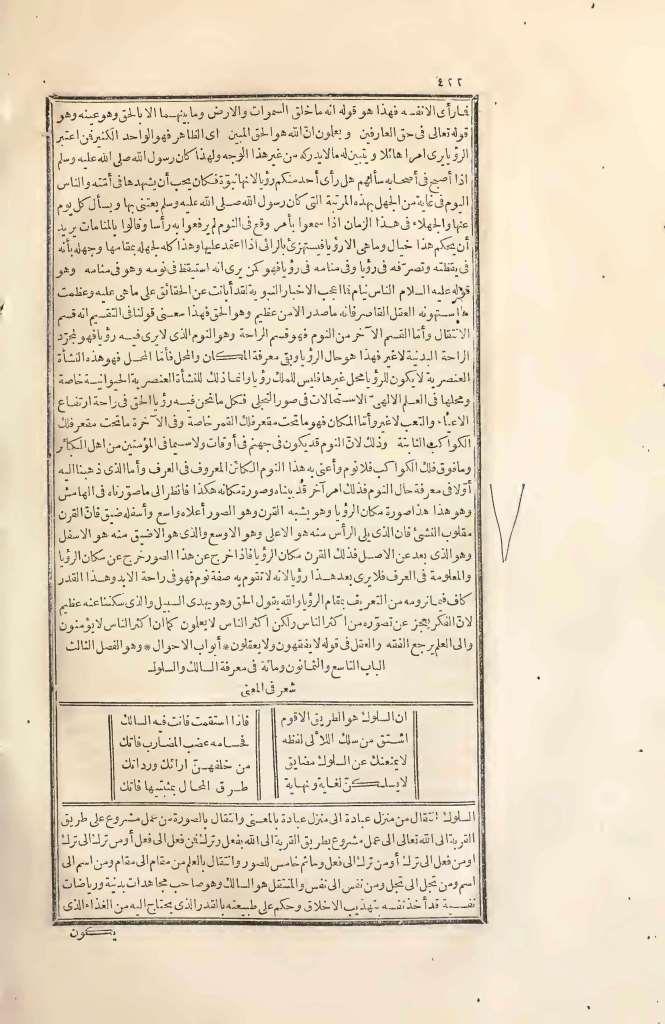 ٤٢٢
فما رأى الا نفسه فهذا هو قوله انه ما خلق السموات والارض وما بينهما الا بالحق وهو عينه وهو
قوله تعالى فى حق العارفين ويعلمون ان الله هو الحق المبين اى الظاهر فهو الواحد الكثير فمن اعتبر
الرؤيا يرى امرا هائلا ويتبين له ما لا يدركه من غير هذا الوجه ولهذا كان رسول الله صلى الله عليه وسلم
اذا أصبح فى أصحابه سألهم هل رأى أحد منكم رؤيا لانها نبوة فكان يحب أن يشهدها فى أمته والناس
اليوم فى غاية من الجهل بهذه المرتبة التى كان رسول الله صلى الله عليه وسلم يعتنى بها ويسأل كل يوم
عنها والجهلاء فى هذا الزمان اذا سمعوا بأمر وقع فى النوم لم يرفعوا به رأسا وقالوا بالمنامات يريد
أن يحكم هذا خيال وما هى الا رؤيا فيستهزئ بالرائى اذا اعتمد عليها وهذا كله لجهله بمقامها وجهله بأنه
فى يقظته وتصرفه فى رؤيا وفى منامه فى رؤيا فهو كمن يرى انه استيقظ فى نومه وهو فى منامه وهو
قوله عليه السلام الناس نيام فما أعجب الاخبار النبوية لقد أبانت عن الحقائق على ما هى عليه وعظمت
ما استهونه العقل القاصر فانه ما صدر الا من عظيم وهو الحق فهذا معنى قولنا فى التقسيم انه قسم
الانتقال وأما القسم الآخر من النوم فهو قسم الراحة وهو النوم الذى لا يرى فيه رؤيا فهو لمجرد
الراحة البدنية لا غير فهذا هو حال الرؤيا وبقى معرفة المكان والمحل فأما المحل فهو هذه النشأة
العنصرية لا يكون للرؤيا محل غيرها فليس للملك رؤيا وانما ذلك للنشأة العنصرية الحيوانية خاصة
ومحلها فى العلم الالهى الاستحالات فى صور التجلى فكل ما نحن فيه رؤيا الحق فى راحة ارتفاع
الاعياء والتعب لا غير وأما المكان فهو ما تحت مقعر فلك القمر خاصة وفى الآخرة ما تحت مقعر فلك
الكواكب الثابتة وذلك لان النوم قد يكون فى جهنم فى أوقات ولا سيما فى المؤمنين من اهل الكبائر
وما فوق فلك الكواكب فلا نوم وأعنى به هذا النوم الكائن المعروف فى العرف وأما الذى ذهبنا اليه
أولا فى معرفة حال النوم فذلك امر آخر قد بيناه وصورة مكانه هكذا فانظر الى ما صورناه فى الهامش
وهو هذا هذا صورة مكان الرؤيا وهو يشبه القرن وهو الصور أعلاه واسع وأسفله ضيق فان القرن
مقلوب النشئ فان الذى يلى الرأس منه هو الاعلى وهو الاوسع والذى هو الاضيق منه هو الاسفل
وهو الذى بعد عن الاصل فذلك القرن مكان الرؤيا فاذا خرج عن هذا الصور خرج عن مكان الرؤيا
والمعلومة فى العرف فلا يرى بعد هذا رؤيا لانه لا تقوم به صفة نوم فهو فى راحة الابد وهذا القدر
كاف فيما نرومه من التعريف بمقام الرؤيا والله يقول الحق وهو يهدى السبيل والذى سكتنا عنه عظيم
لان الفكر يعجز عن تصوره من أكثر الناس ولكن أكثر الناس لا يعلمون كما ان اكثر الناس لا يؤمنون
والى العلم يرجع الفقه والعقل فى قوله لا يفقهون ولا يعقلون * أبواب الاحوال * وهو الفصل الثالث
الباب التاسع والثمانون ومائة فى معرفة السالك والسلوك
شعر فى المعنى
ان السلوك هو الطريق الاقوم فاذا استقمت فانت فيه السالك
اشتق من سلك اللآلى لفظه فحسامه عضب المضارب فاتك
لا يمنعنك عن السلوك مضايق من خلفهن ارائك ودرانك
لا يسلكن لغاية ونهاية طرق المحال بمثبتيها فاتك
السلوك انتقال من منزل عبادة الى منزل عبادة بالمعنى وانتقال بالصورة من عمل مشروع على طريق
القربة الى الله تعالى الى عمل مشروع بطريق القربة الى الله بفعل وترك فمن فعل الى فعل أو من ترك الى ترك
او من فعل الى ترك أو من ترك الى فعل وما ثم خامس للصور وانتقال بالعلم من مقام الى مقام ومن اسم الى
اسم ومن تجل الى تجل ومن نفس الى نفس والمنتقل هو السالك وهو صاحب مجاهدات بدنية ورياضات
نفسية قد أخذ نفسه بتهذيب الاخلاق وحكم على طبيعته بالقدر الذى يحتاج اليه من الغذاء الذى
يكون